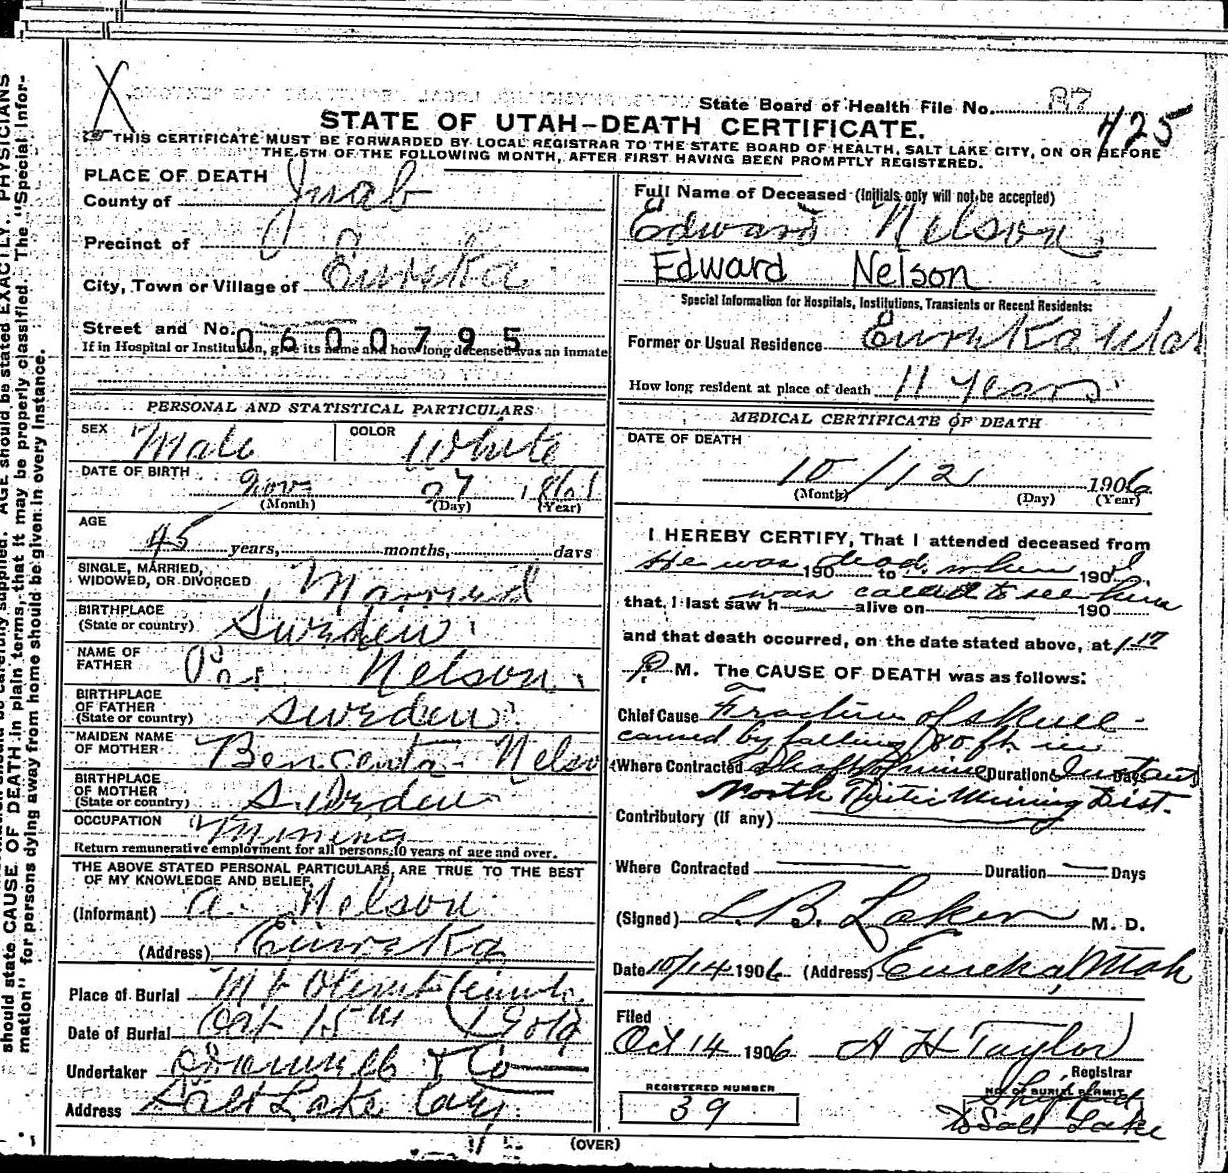 should state CAUSE OF DEATH in plain terms, that it may be properly classified. The "Special Infor-
mation" for persons dying away from home should be given in every instance.
carefully supplied. AGE should be stated EXACTLY. PHYSICIANS
X
State Board of Health File No. 87
425
STATE OF UTAH-DEATH CERTIFICATE.
THIS CERTIFICATE MUST BE FORWARDED BY LOCAL REGISTRAR TO THE STATE BOARD OF HEALTH, SALT LAKE CITY, ON OR BEFORE
THE 5TH OF THE FOLLOWING MONTH, AFTER FIRST HAVING BEEN PROMPTLY REGISTERED.
PLACE OF DEATH
County of Juab
Precinct of
City, Town or Village of Eureka
Street and No.
0600795
If in Hospital or Institution, give its name and how long deceased was an inmate
PERSONAL AND STATISTICAL PARTICULARS
SEX Male COLOR White
DATE OF BIRTH Nov 27 1861
(Month) (Day) (Year)
AGE
45 years, months, days
SINGLE, MARRIED,
WIDOWED, OR DIVORCED Married
BIRTHPLACE
(State or country) Sweden
NAME OF
FATHER Nelson
BIRTHPLACE
OF FATHER
(State or country) Sweden
MAIDEN NAME
OF MOTHER Bencenta Nelson
BIRTHPLACE
OF MOTHER
(State or country) Sweden
OCCUPATION Mining
Return remunerative employment for all persons 10 years of age and over.
THE ABOVE STATED PERSONAL PARTICULARS, ARE TRUE TO THE BEST
OF MY KNOWLEDGE AND BELIEF
(Informant) A. Nelson
(Address) Eureka
Place of Burial Mt Olivet
Date of Burial Oct 15th 1906
Undertaker & Co
Address Salt Lake City
Full Name of Deceased (Initials only will not be accepted)
Edward Nelson
Edward Nelson
Special Information for Hospitals, Institutions, Transients or Recent Residents:
Former or Usual Residence Eureka Utah
How long resident at place of death 11 years
MEDICAL CERTIFICATE OF DEATH
DATE OF DEATH
10/12 1906
(Month) (Day) (Year)
I HEREBY CERTIFY, That I attended deceased from
He was dead when I
190 to 190
was called to see him
that I last saw h alive on 190
and that death occurred, on the date stated above, at 1:17
P. M. The CAUSE OF DEATH was as follows:
Chief Cause Fracture of skull
caused by falling 180 ft. in
Where Contracted Shaft of mine Duration Instant Days
North Tintic Mining Dist.
Contributory (if any)
Where Contracted Duration Days
(Signed) L. B. Laker M. D.
Date 10/14 1906 (Address) Eureka, Utah
Filed
Oct 14 1906 A H Taylor
Registrar
REGISTERED NUMBER
39
NO. OF BURIAL PERMIT
Shipped
to Salt Lake
(OVER)